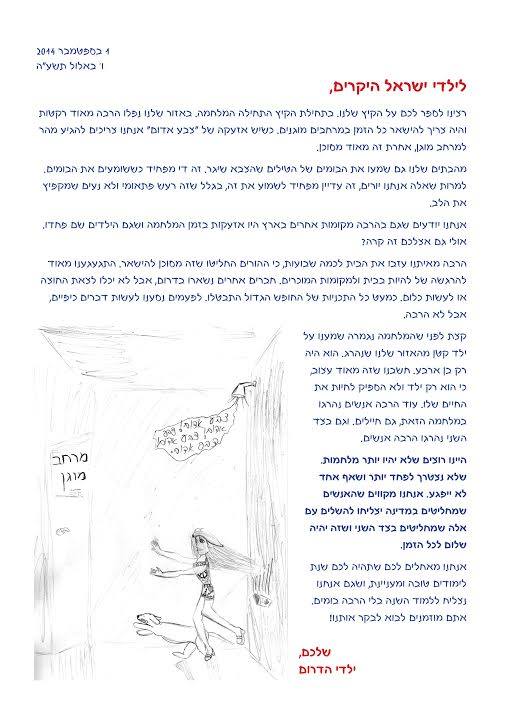 1 בספטמבר 2014
ו' באלול תשע"ה
לילדי ישראל היקרים,
רצינו לספר לכם על הקיץ שלנו. בתחילת הקיץ התחילה המלחמה. באזור שלנו נפלו הרבה מאוד רקטות
והיה צריך להישאר כל הזמן במרחבים מוגנים. כשיש אזעקה של "צבע אדום" אנחנו צריכים להגיע מהר
למרחב מוגן, אחרת זה מאוד מסוכן.
מהבתים שלנו גם שמענו את הבומים של הטילים שהצבא שיגר. זה די מפחיד כששומעים את הבומים.
למרות שאלה אנחנו יורים, זה עדיין מפחיד לשמוע את זה, בגלל שזה רעש פתאומי ולא נעים שמקפיץ
את הלב.
אנחנו יודעים שגם בהרבה מקומות אחרים בארץ היו אזעקות בזמן המלחמה ושגם הילדים שם פחדו.
אולי גם אצלכם זה קרה?
הרבה מאיתנו עזבו את הבית לכמה שבועות, כי ההורים החליטו שזה מסוכן להישאר. התגעגענו מאוד
להרגשה של להיות בבית ולמקומות המוכרים. חברים אחרים נשארו בדרום, אבל לא יכלו לצאת החוצה
או לעשות כלום. כמעט כל התכניות של החופש הגדול התבטלו. לפעמים נסענו לעשות דברים כיפיים,
אבל לא הרבה.
קצת לפני שהמלחמה נגמרה שמענו על
ילד קטן מהאזור שלנו שנהרג. הוא היה
רק בן ארבע. חשבנו שזה מאוד עצוב,
כי הוא רק ילד ולא הספיק לחיות את
החיים שלו. עוד הרבה אנשים נהרגו
במלחמה הזאת, גם חיילים. וגם בצד
השני נהרגו הרבה אנשים.
היינו רוצים שלא יהיו יותר מלחמות.
שלא נצטרך לפחד יותר ושאף אחד
לא ייפגע. אנחנו מקווים שהאנשים
שמחליטים במדינה יצליחו להשלים עם
אלה שמחליטים בצד השני ושזה יהיה
שלום לכל הזמן.
אנחנו מאחלים לכם שתהיה לכם שנת
לימודים טובה ומעניינת, ושגם אנחנו
נצליח ללמוד השנה בלי הרבה בומים.
אתם מוזמנים לבוא לבקר אותנו!
שלכם,
ילדי הדרום
צבע אדום! צבע
אדום! צבע אדום!
צבע אדום!
מרחב
מוגן